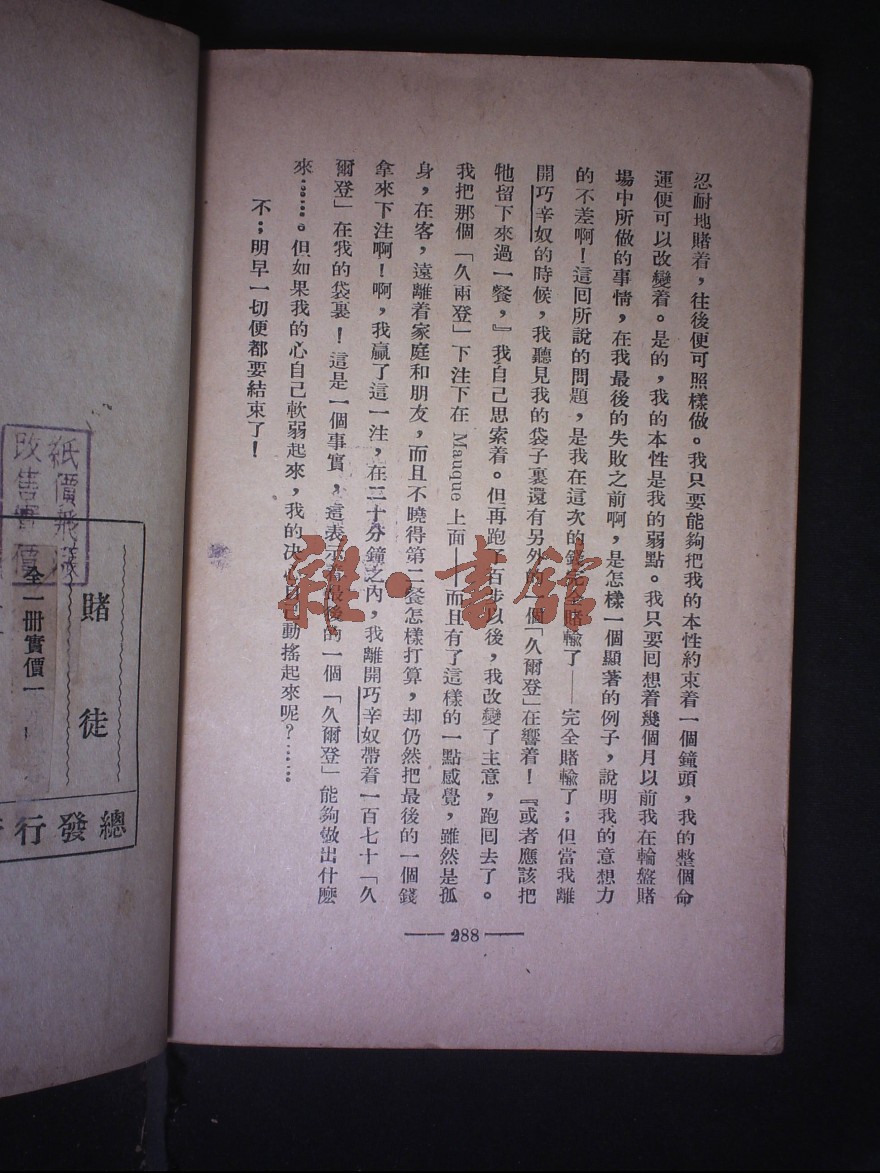 忍耐地賭着，往後便可照樣做。我只要能夠把我的本性約束着一個鐘頭，我的整個命
運便可以改變着。是的，我的本性是我的弱點。我只要回想着幾個月以前我在輪盤賭
場中所做的事情，在我最後的失敗之前啊，是怎樣一個顯著的例子，說明我的意想力
的不差啊！這回所說的問題，是我在這次的錢完全賭輸了——完全賭輸了；但當我離
開巧辛奴的時候，我聽見我的袋子裏還有另外的一個「久爾登」在響着！『或者應該把
牠留下來過一餐，』我自己思索着。但再跑了百步以後，我改變了主意，跑回去了。
我把那個「久兩登」下注下在 Mauque 上面——而且有了這樣的一點感覺，雖然是孤
身，在客，遠離着家庭和朋友，而且不曉得第二餐怎樣打算，却仍然把最後的一個錢
拿來下注啊！啊，我贏了這一注，在二十分鐘之內，我離開巧辛奴帶着一百七十「久
爾登」在我的袋裏！這是一個事實，這表示着最後的一個「久爾登」能夠做出什麼
來……。但如果我的心自己軟弱起來，我的決心自己動搖起來呢？……
不；明早一切便都要結束了！
288
雜·書館
紙價飛漲
改售實價
賭徒
全一冊實價一
總發行